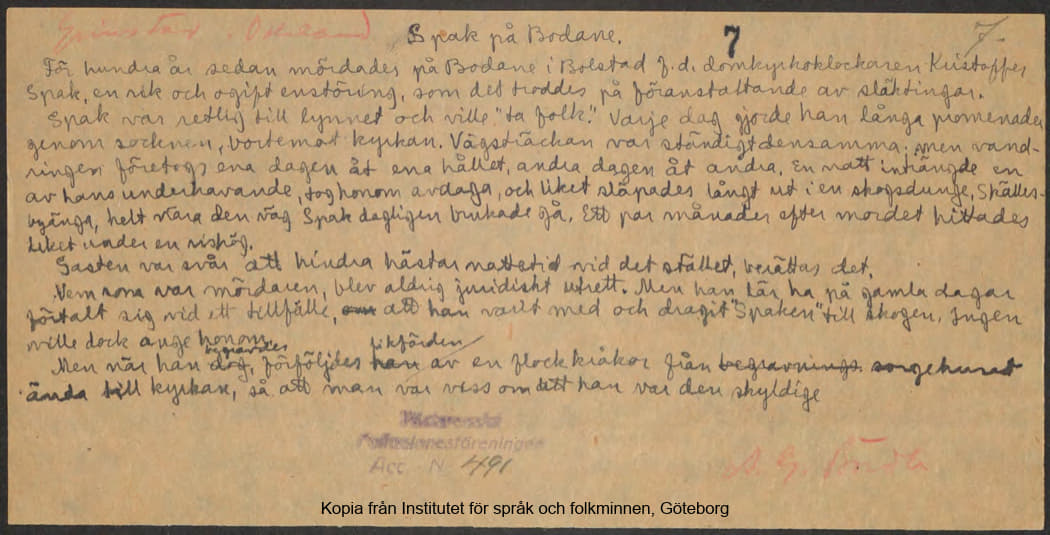 Spak på Bodane. 7 7.
För hundra år sedan mördades på Bodane i Bolstad f.d. domkyrkoklockaren Kristoffer
Spak, en rik och ogift enstöring, som det troddes på föranstaltande av släktingar.
Spak var retlig till lynnet och ville "ta folk". Varje dag gjorde han långa promenader
genom socknen, bortemot kyrkan. Vägsträckan var ständigt densamma, men vand-
ringen företogs ena dagen åt ena hållet, andra dagen åt andra. En natt inträngde en
av hans underhavande, tog honom av daga, och liket släpades långt ut i en skogsdunge, Skälles-
byänga, helt nära den väg Spak dagligen brukade gå. Ett par månader efter mordet hittades
liket under en rishög.
Gasten var svår att hindra hästar nattetid vid det stället, berättas det.
Vem som var mördaren, blev aldrig juridiskt utrett. Men han lär ha på gamla dagar
förtalt sig vid ett tillfälle, om att han varit med och dragit "Spaken" till skogen. Ingen
ville dock ange honom.
begravdes likfärden
Men när han dog, förföljdes han av en flock kråkor från begravnings. sorgehuset
ända till kyrkan, så att man var viss om att han var den skyldige
Västsvenska
Folkminnesföreningen
Acc. N. 491
Kopia från Institutet för språk och folkminnen, Göteborg